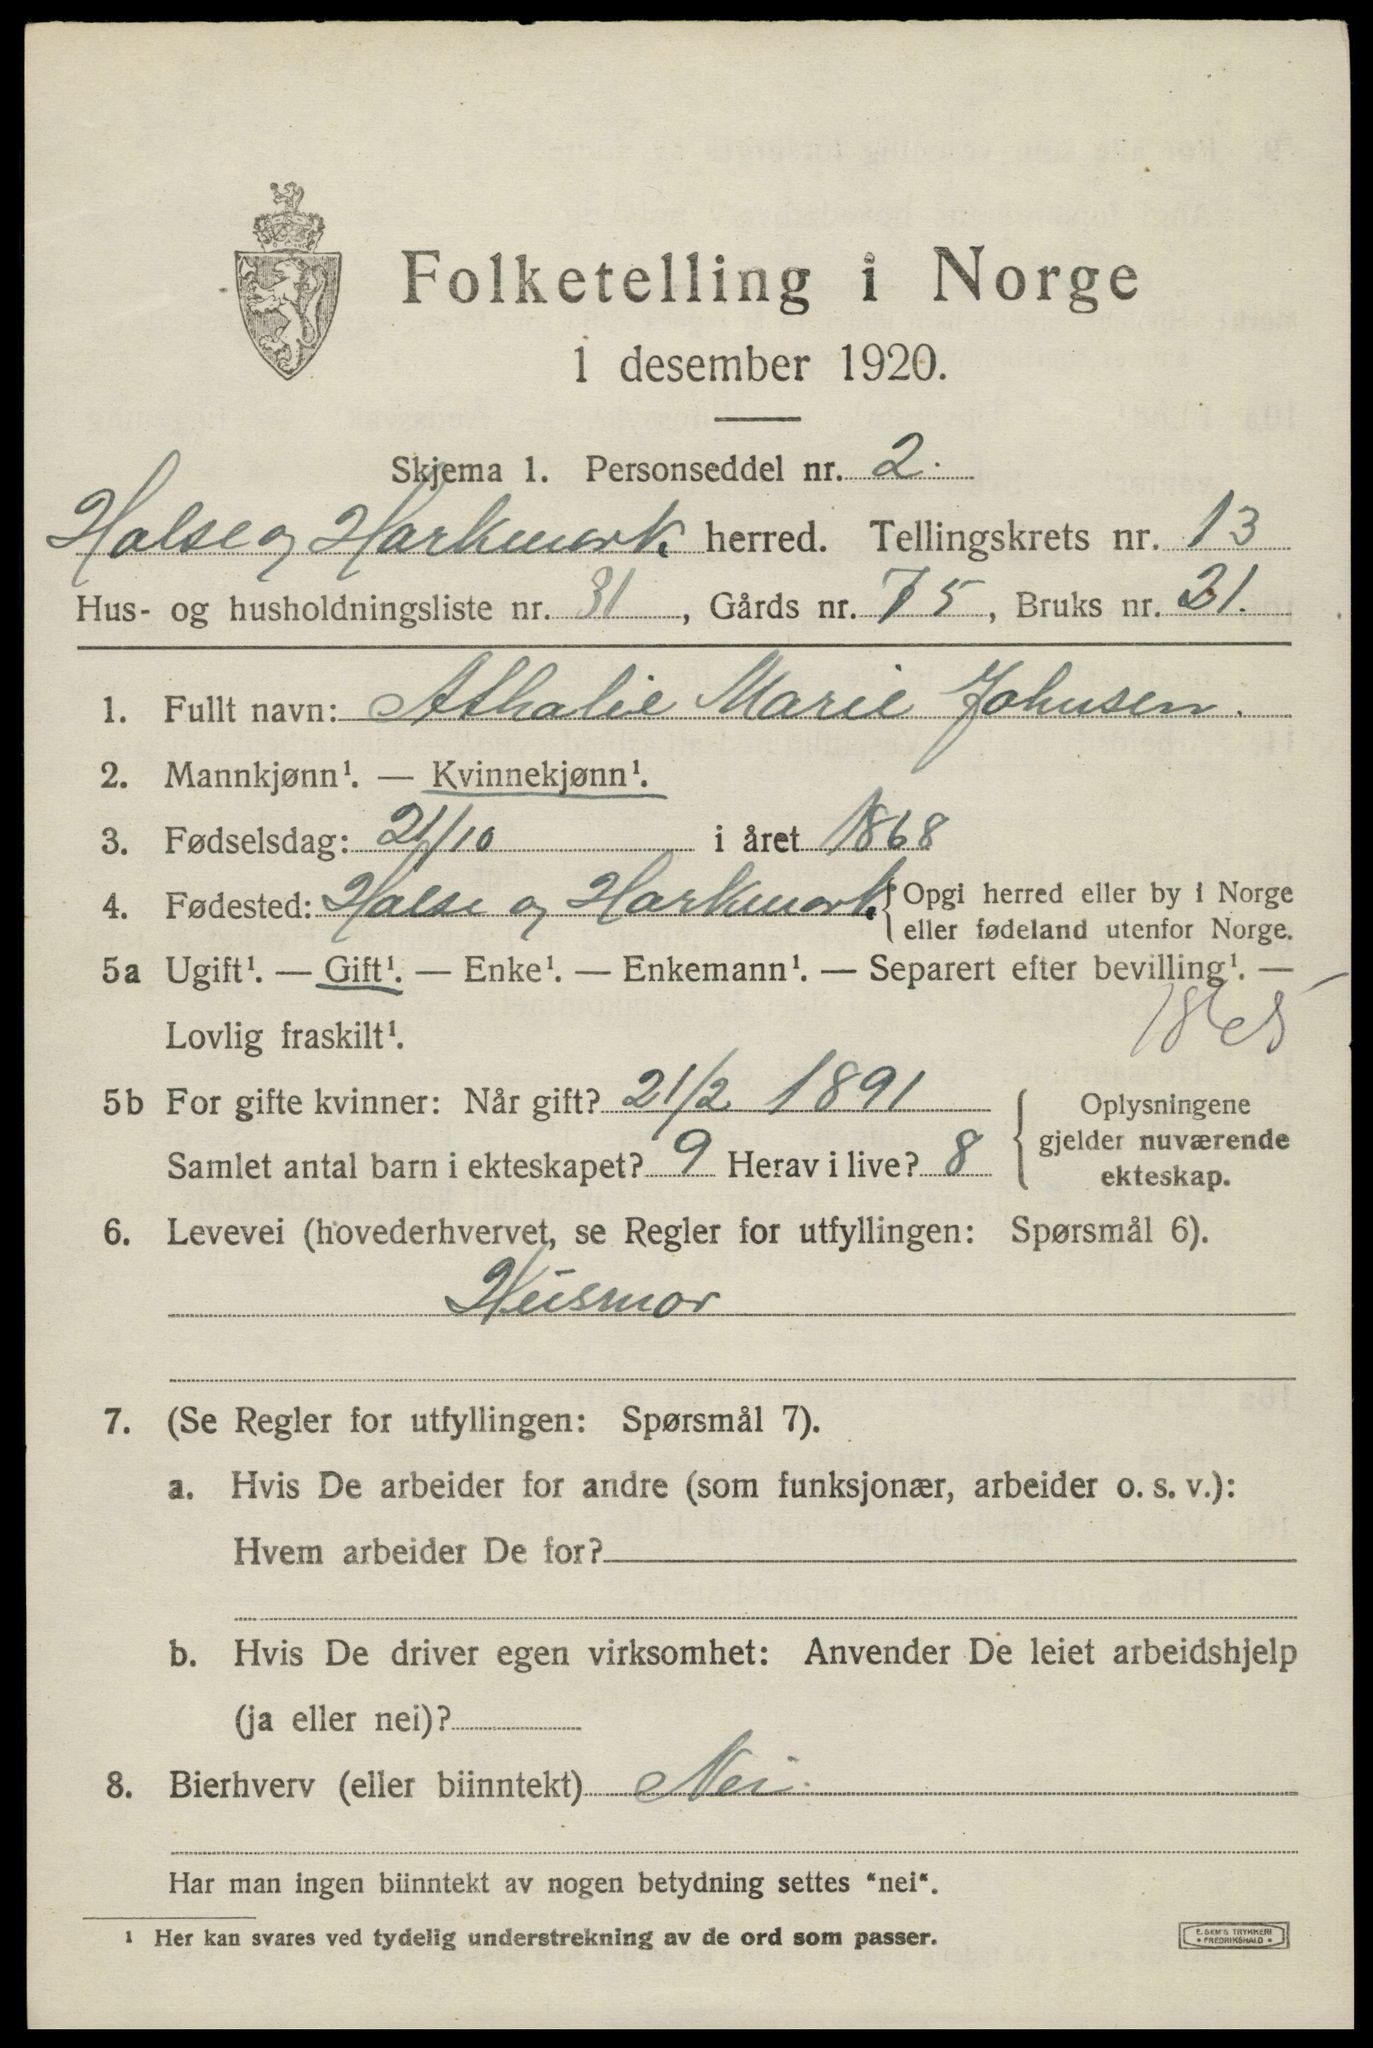 Folketelling i Norge
1 desember 1920.
Skjema 1. Personseddel nr. 2.
Halse og Harkmark herred. Tellingskrets nr. 13
Hus- og husholdningsliste nr. 31, Gårds nr. 75, Bruks nr. 21.
1. Fullt navn: Athalie Marie Johnsen.
2. Mannkjønn¹. — Kvinnekjønn¹.
3. Fødselsdag: 21/10 i året 1868
4. Fødested: Halse og Harkmark { Opgi herred eller by i Norge
eller fødeland utenfor Norge.
5a Ugift¹. — Gift¹. — Enke¹. — Enkemann¹. — Separert efter bevilling¹. —
Lovlig fraskilt¹.
5b For gifte kvinner: Når gift? 21/2 1891
Samlet antal barn i ekteskapet? 9 Herav i live? 8
{ Oplysningene
gjelder nuværende
ekteskap.
6. Levevei (hovederhvervet, se Regler for utfyllingen: Spørsmål 6).
Husmor
7. (Se Regler for utfyllingen: Spørsmål 7).
a. Hvis De arbeider for andre (som funksjonær, arbeider o. s. v.):
Hvem arbeider De for?
b. Hvis De driver egen virksomhet: Anvender De leiet arbeidshjelp
(ja eller nei)?
8. Bierhverv (eller biinntekt) Nei.
Har man ingen biinntekt av nogen betydning settes "nei".
¹ Her kan svares ved tydelig understrekning av de ord som passer.
E. SEM'S TRYKKERI
• FREDRIKSHALD •